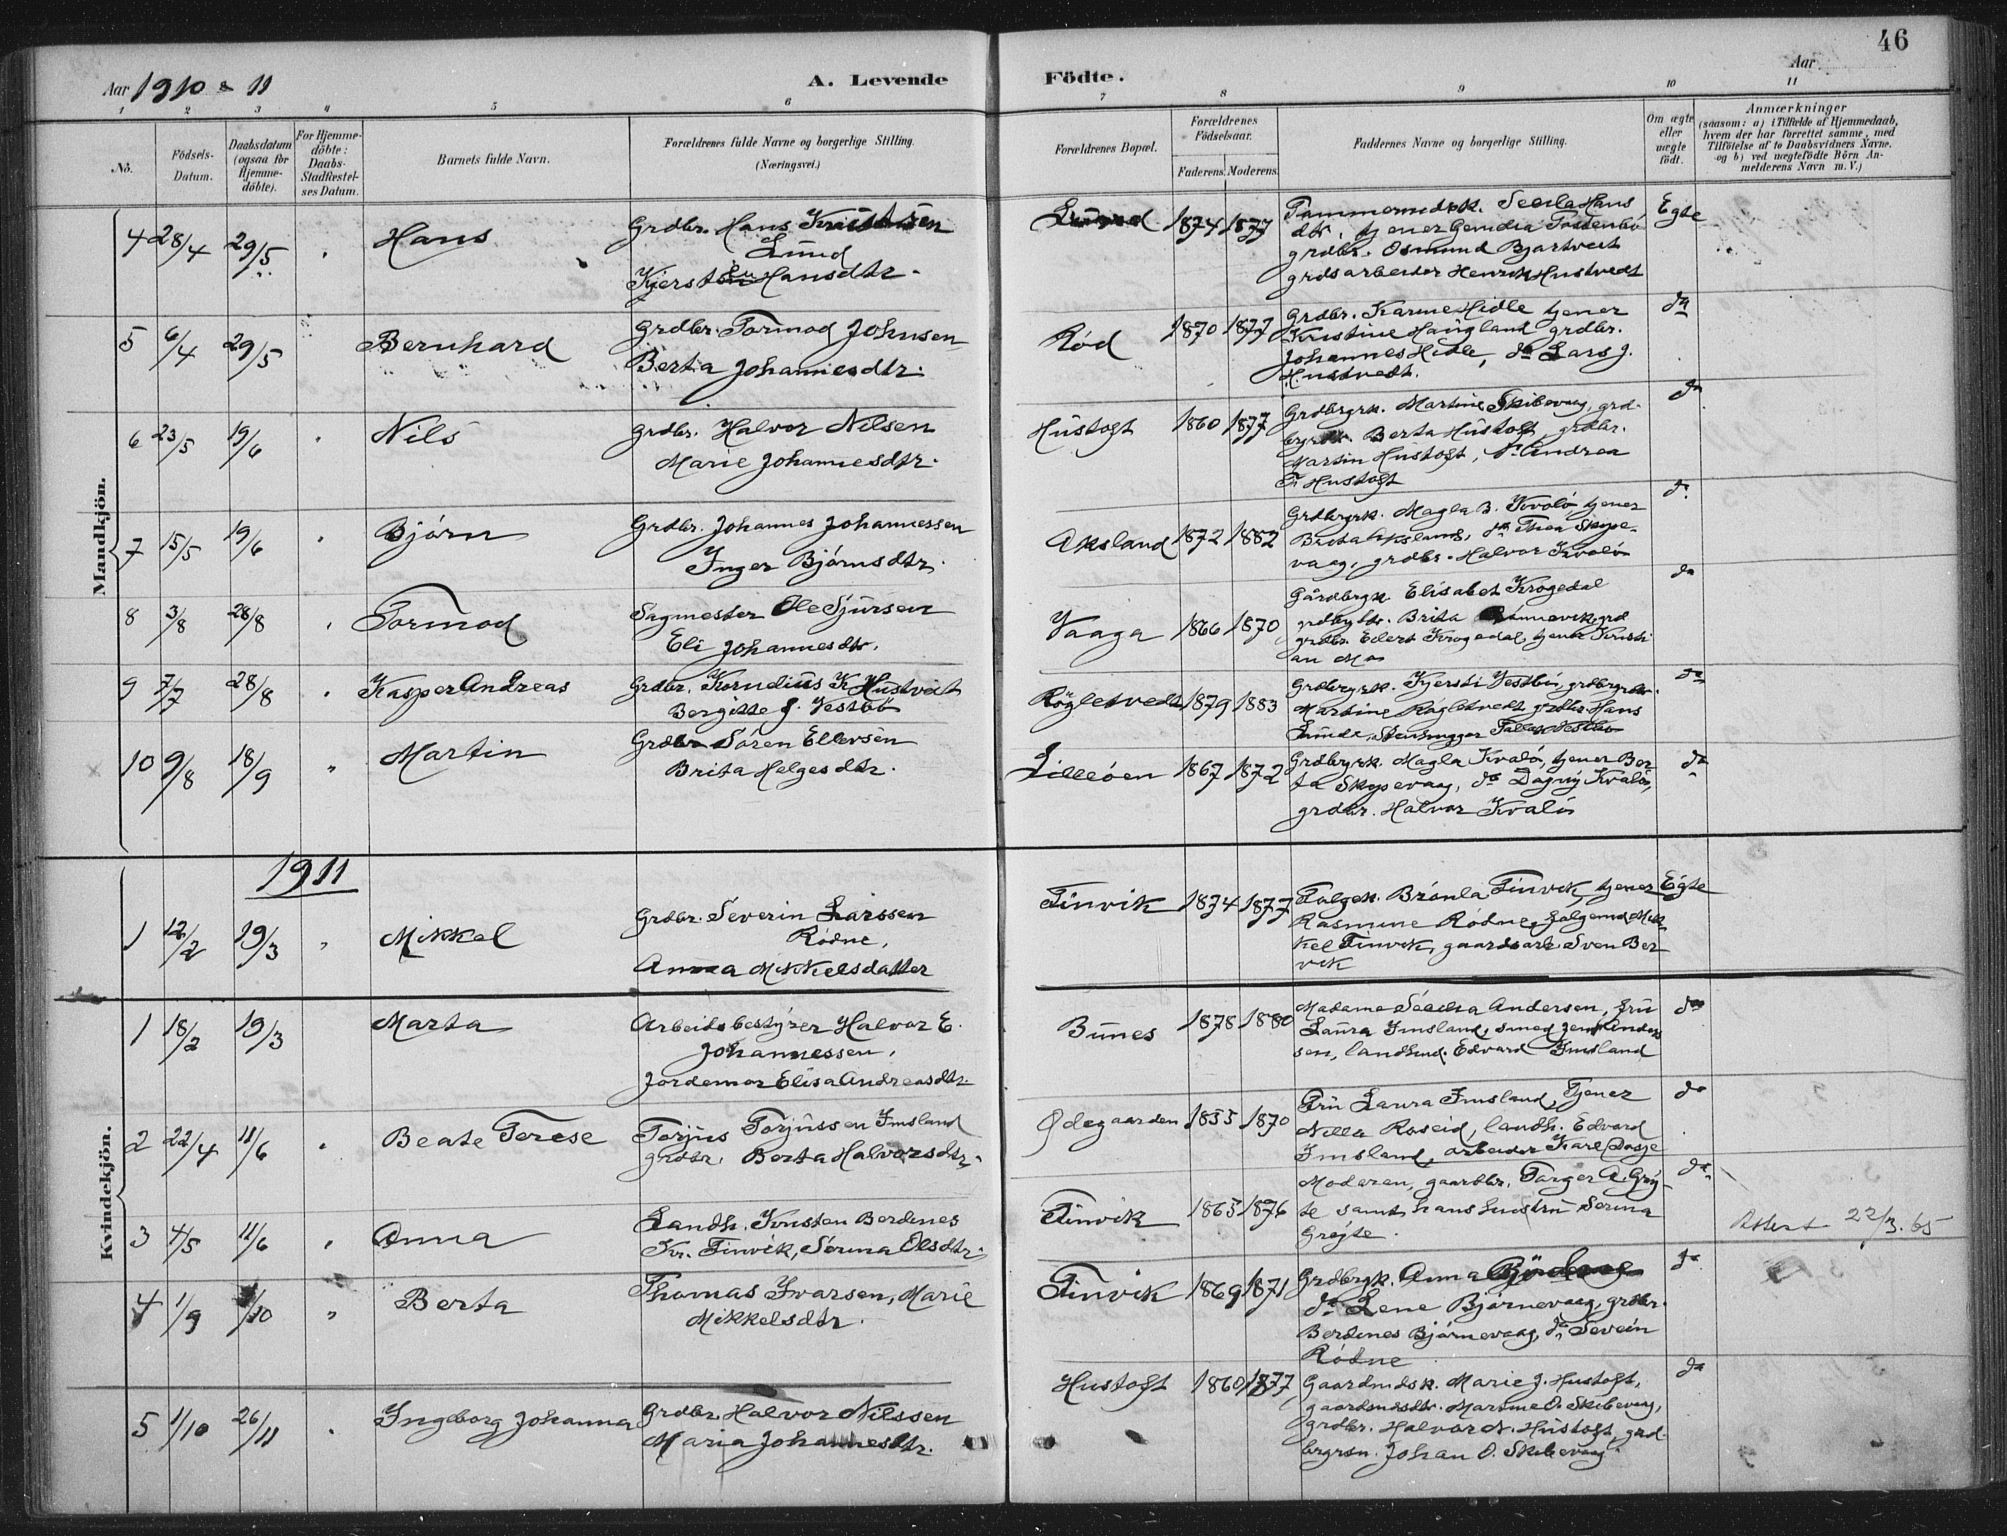 46
Aar 1910 & 11
A. Levende Födte.
Aar
1 2 3 4 5 6 7 8 9 10 11
No.
Födsels-Datum.
Daabsdatum (ogsaa for Hjemme-döbte).
For Hjemme-döbte: Daabs-Stadfæstel-ses Datum.
Barnets fulde Navn.
Forældrenes fulde Navne og borgerlige Stilling. (Næringsvei.)
Forældrenes Bopæl.
Forældrenes Födselsaar.
Faderens. Moderens.
Faddernes Navne og borgerlige Stilling.
Om ægte eller uægte födt.
Anmærkninger
(saasom: a) i Tilfælde af Hjemmedaab,
hvem der har forrettet samme, med
Tilföielse af to Daabsvidners Navne.
og b) ved uægtefödte Börn An-
melderens Navn m. V.)
Mandkjön.
4 28/4 29/5 " Hans
Grdbr. Hans Kristensen
Lund
Kjersten Hansdtr.
Lund 1874 1877
dtr, tjener
grdbr. Osmund Bjartveit
grdsarbeider Henrik Hustvedt
Egte
5 6/4 29/5 Bernhard
Grdbr. Tormod Johnsen
Berta Johannesdtr.
Rød 1870 1877
Grdbr. Karine Hidle tjener
Kristine Haugland grdbr.
Johannes Hidle, do Lars J.
Hustvedt.
do
6 23/5 19/6 " Nils
Grdbr. Halvor Nilsen
Marie Johannesdtr.
Hustoft 1860 1877
Grdbrgrk. Martine Skibevaag, grd-
Berta Hustoft, grdbr.
Martin Hustoft, Andrea
T. Hustoft
do
7 15/5 19/6 " Bjórn
Grdbr. Johannes Johannessen
Inger Bjórnsdtr.
Aksland 1872 1882
Grdbrgrk. Magla B. Kvaló, tjener
Brita Aksland, do Thea Skype-
vaag, grdbr. Halvor Kvaló
do
8 3/8 28/8 " Tormod
Sagmester Ole Sjursen
Eli Johannesdtr.
Vaaga 1866 1870
Gårdbrgk Elisabet Krogedal
Brita
grdbr. Edert Krogedal, tjener Kristi
an Mo
do
9 7/7 28/8 " Kasper Andreas
Grdbr. Kornelius K Hustveit
Bergitte J. Vestbö
Rögletvedt 1879 1883
Grdbrgrk. Kjersti Vestbö, grdbrgrdtr.
Martine Rögletvedt grdbr. Hans
Lunde, Stenhugger Vestbö
do
10 9/8 18/9 " Martin
Grdbr Sóren Ellersen
Brita Helgesdtr.
Lilleóen 1867 1872
Grdbrgrk. Magla Kvaló, tjener Ber
ta Skypevaag, do Dagny Kvaló,
grdbr. Halvor Kvaló
do
1911
1 12/2 19/3 " Mikkel
Grdbr. Severin Larssen
Ródne,
Anna Mikkelsdatter
Finvik 1874 1877
Folgek. Brónla Finvik, tjener
Rasmine Ródne, folgemd Mik
kel Finvik, gaardsarb. Sven Ber
vik
Egte
Kvindekjön.
1 18/2 19/3 Marta
Arbeidsbestyrer Halvor E.
Johannessen,
Jordemor Elisa Andreasdtr.
Bunes 1878 1880
Madame Andersen, fru
Laura Imsland, smed Jens Anders
sen, landhnd. Edvard Imsland
do
2 22/4 11/6 " Beate Terese
Torjus Torjussen Imsland
grdbr. Berta Halvorsdtr.
Ødegaarden 1855 1870
Fru Laura Imsland, Tjener
Nilla Roseid, landh. Edvard
Imsland, arbeider Karl
do
3 4/5 11/6 " Anna
Landh. Kristen Berdines
Kr. Finvik, Serina Olsdtr.
Finvik 1865 1876
Moderen, gaardbr. Torger A Gröj-
te samt hans hustru Serina
Gröjte.
do
Attest 22/3.65
4 1/9 1/10 " Berta
Thomas Ivarsen, Marie
Mikkelsdtr.
Finvik 1869 1871
Grdbrgk. Anna
do Lene Bjórnevaag, grdbr.
Berdines Bjórnevaag, do Severin
Ródne
do
5 1/10 26/11 " Ingeborg Johanna
Grdbr. Halvor Nilssen
Maria Johannesdtr.
Hustoft 1860 1877
Gaardmdsk. Marie J. Hustoft,
gaardmdsdtr. Martine O. Skibevaag,
grdbr. Halvor N. Hustoft, grd-
brgrsn. Johan O. Skibevaag
do